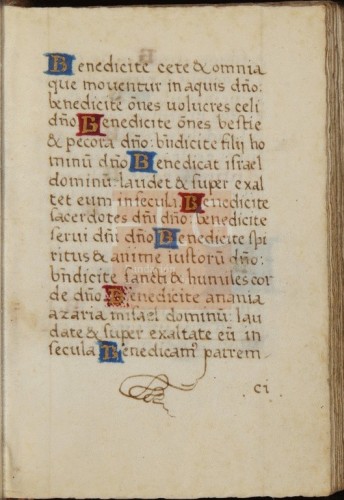 Benedicite cete & omnia
que mouentur in aquis dño:
benedicite õnes uolucres celi
dño Benedicite õnes bestie
& pecora dño: bñdicite filij ho
minũ dño Benedicat israel
dominũ: laudet & super exal
tet eum in secula Benedicite
sacerdotes dñi dño: benedicite
serui dñi dño Benedicite spi
ritus & anime iustorũ dño:
bñdicite sancti & humiles cor
de dño. Benedicite anania
azaria misael dominũ: lau
date & super exaltate eũ in
secula Benedicamꝰ patrem
ci